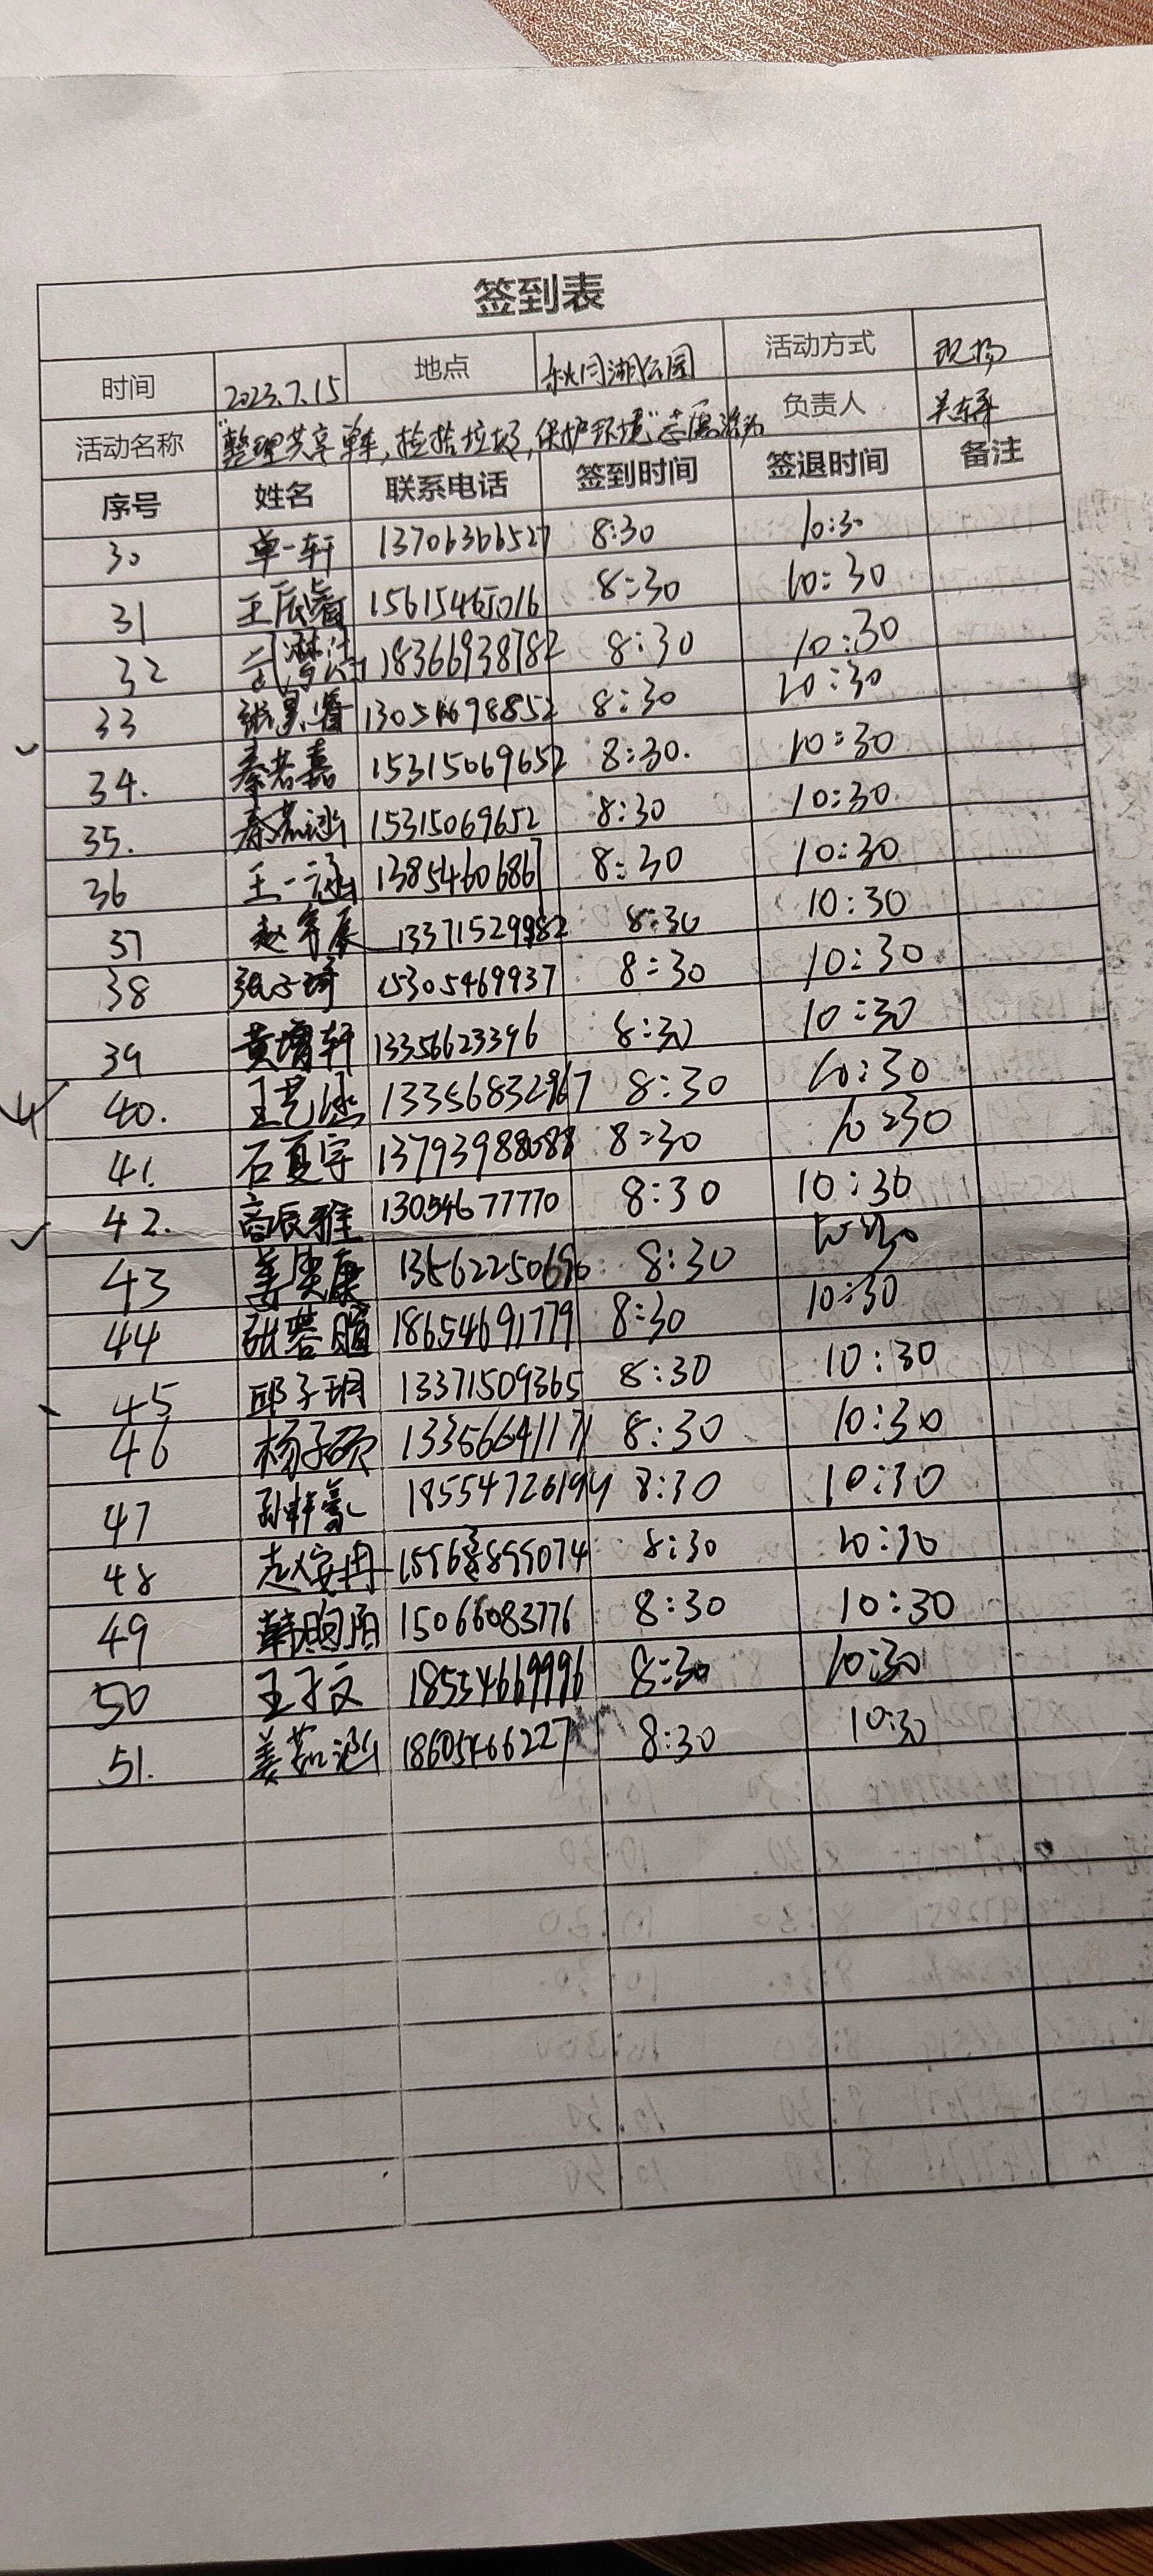 签到表
时间 2023.7.15 地点 秋月湖公园 活动方式 现场
活动名称 "整理共享单车,捡拾垃圾,保护环境"志愿活动 负责人
序号 姓名 联系电话 签到时间 签退时间 备注
30 单一轩 13706366527 8:30 10:30
31 王辰睿 15615465016 8:30 10:30
32 18366938782 8:30 10:30
33 13054698852 8:30 10:30
34. 秦若嘉 15315069652 8:30. 10:30
35. 秦若涵 15315069652 8:30 10:30
36 王一涵 13854606867 8:30 10:30
37 赵宇辰 13371529982 8:30 10:30
38 张子琦 15305469937 8:30 10:30
39 黄增轩 13356623396 8:30 10:30
40. 王艺涵 13356832967 8:30 10:30
41. 石夏宇 13793988088 8:30 10:30
42. 商辰雅 13054677770 8:30 10:30
43 姜奕康 13562250696 8:30 10:30
44 张蓉瑄 18654691779 8:30 10:30
45 邱子玥 13371509365 8:30 10:30
46 杨子硕 13356641171 8:30 10:30
47 18554726194 8:30 10:30
48 赵安冉 8:30 10:30
49 韩昫阳 15066083776 8:30 10:30
50 王子文 18554669996 8:30 10:30
51. 姜茹涵 18605466227 8:30 10:30